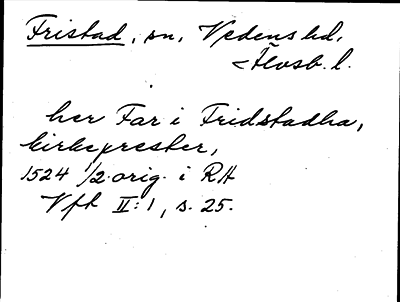 Fristad, sn, Vedens hd,
Älvsb. l.
her Far i Fridstadha,
kirkeprester,
1524 1/2 orig. i RA
Vft II:1, s. 25.